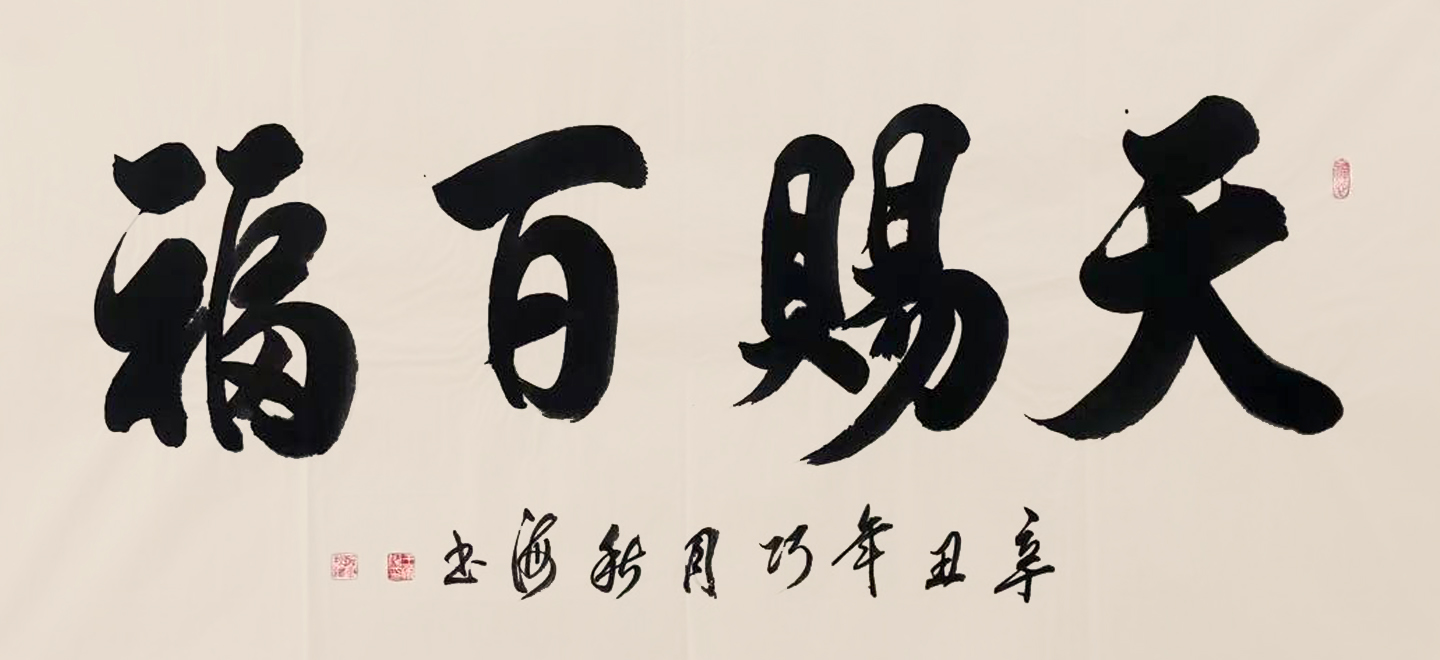 天賜百福
辛丑年巧月秋海书